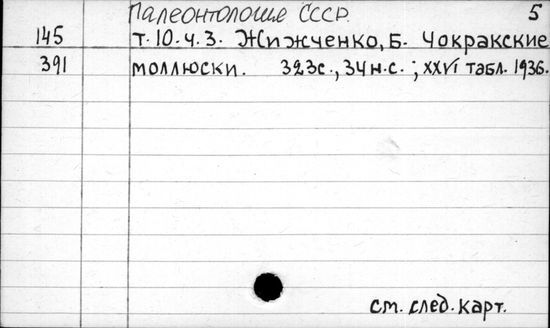 Палеонтология СССР. 5
145 т.10.ч.3. Жижченко, Б. Чокракские
391 моллюски. 323с., 34н.с.; XXVI табл. 1936.
см. след. карт.